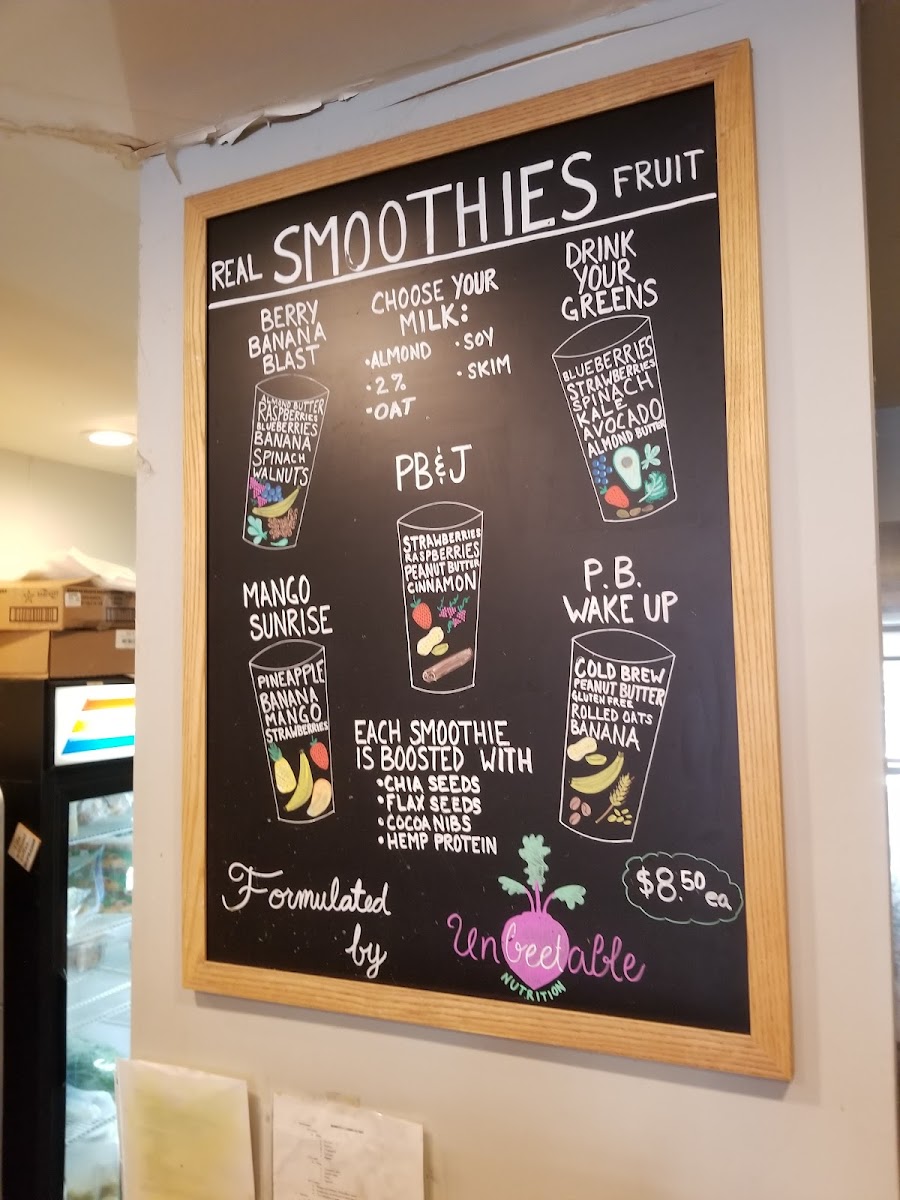 REAL SMOOTHIES FRUIT
BERRY
BANANA
BLAST
ALMOND BUTTER
RASPBERRIES
BLUEBERRIES
BANANA
SPINACH
WALNUTS
CHOOSE YOUR
MILK:
•ALMOND
•2%
•OAT
•SOY
•SKIM
DRINK
YOUR
GREENS
BLUEBERRIES
STRAWBERRIES
SPINACH
KALE
AVOCADO
ALMOND BUTTER
PB&J
STRAWBERRIES
RASPBERRIES
PEANUT BUTTER
CINNAMON
MANGO
SUNRISE
PINEAPPLE
BANANA
MANGO
STRAWBERRIES
P.B.
WAKE UP
COLD BREW
PEANUT BUTTER
GLUTEN FREE
ROLLED OATS
BANANA
EACH SMOOTHIE
IS BOOSTED WITH
•CHIA SEEDS
•FLAX SEEDS
•COCOA NIBS
•HEMP PROTEIN
$8.50 ea
Formulated
by
Unbeetable
NUTRITION